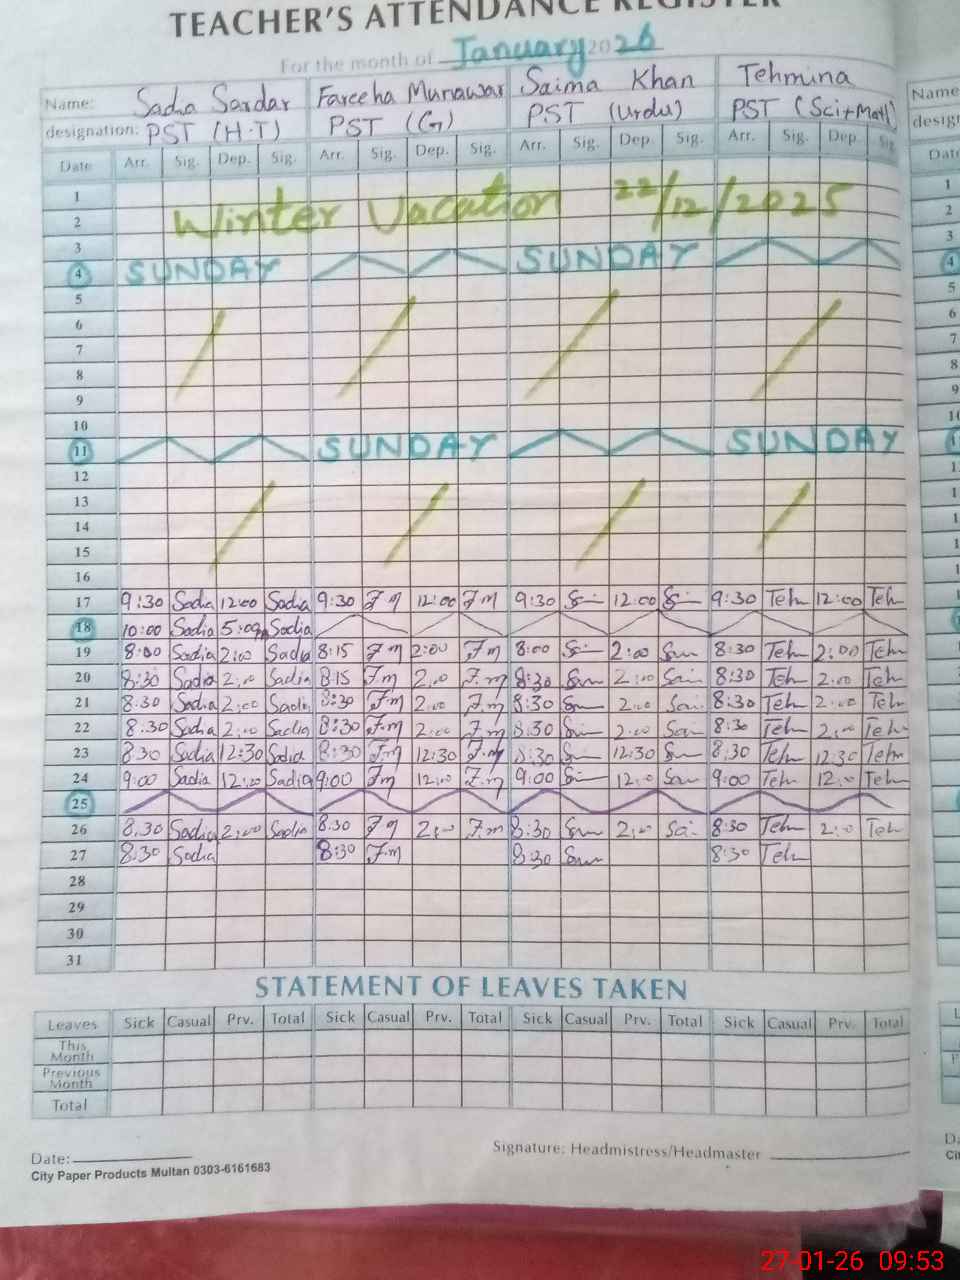 TEACHER'S ATTENDANCE REGISTER
For the month of January 2026
Name: Sadia Sardar Fareeha Munawar Saima Khan Tehmina Name
designation: PST (H.T) PST (G) PST (Urdu) PST (Sci+Math) design
Date Arr. Sig. Dep. Sig. Arr. Sig. Dep. Sig. Arr. Sig. Dep. Sig. Arr. Sig. Dep. Sig. Date
1 1
2 Winter Vacation 22/12/2025 2
3 3
4 SUNDAY SUNDAY 4
5 5
6 6
7 7
8 8
9 9
10 10
11 SUNDAY SUNDAY
12
13
14
15
16
17 9:30 Sadia 12:00 Sadia 9:30 F.M 12:00 F.M 9:30 12:00 9:30 Teh 12:00 Teh
18 10:00 Sadia 5:00 Sadia
19 8:00 Sadia 2:00 Sadia 8:15 F.M 2:00 F.M 8:00 2:00 8:30 Teh 2:00 Teh
20 8:30 Sadia 2:00 Sadia 8:15 F.m 2:00 F.m 8:30 2:00 8:30 Teh 2:00 Teh
21 8:30 Sadia 2:00 Sadia 8:30 F.m 2:00 F.m 8:30 2:00 8:30 Teh 2:00 Teh
22 8:30 Sadia 2:00 Sadia 8:30 F.m 2:00 F.m 8:30 2:00 8:30 Teh 2:00 Teh
23 8:30 Sadia 12:30 Sadia 8:30 F.m 12:30 F.m 8:30 12:30 8:30 Teh 12:30 Teh
24 9:00 Sadia 12:00 Sadia 9:00 F.m 12:00 F.m 9:00 12:00 9:00 Teh 12:00 Teh
25
26 8:30 Sadia 2:00 Sadia 8:30 F.M 2:00 F.m 8:30 2:00 8:30 Teh 2:00 Teh
27 8:30 Sadia 8:30 F.m 8:30 8:30 Teh
28
29
30
31
STATEMENT OF LEAVES TAKEN
Leaves Sick Casual Prv. Total Sick Casual Prv. Total Sick Casual Prv. Total Sick Casual Prv. Total
This Month
Previous Month
Total
Date: Signature: Headmistress/Headmaster
City Paper Products Multan 0303-6161683
27-01-26 09:53